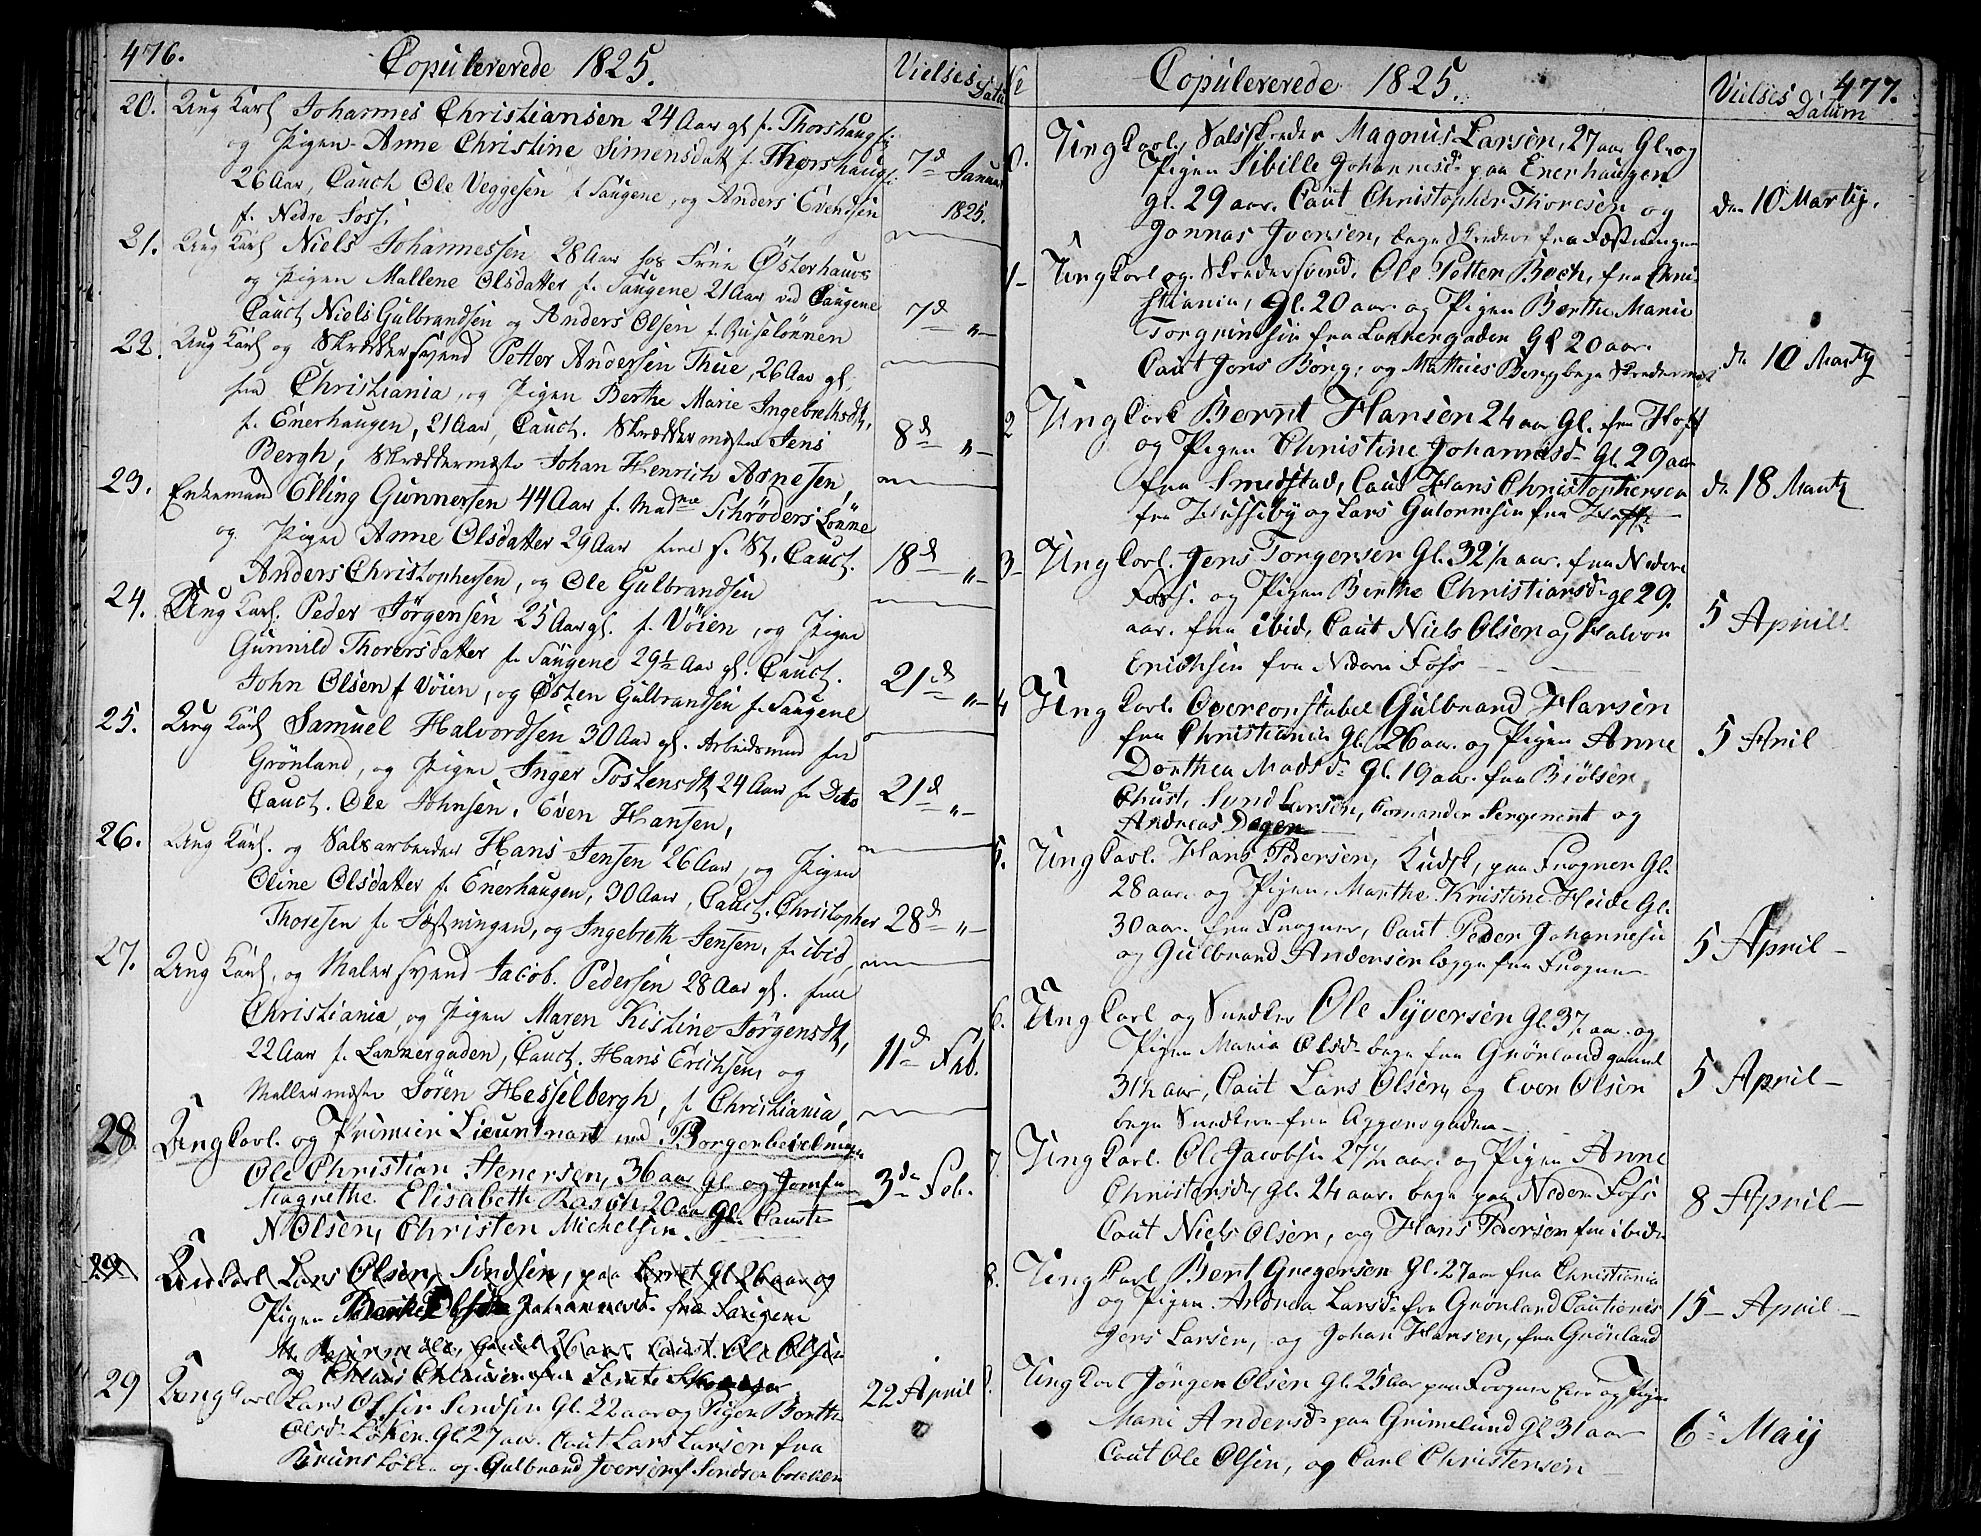 476.
Copulererede 1825.
Vielses Datum
20. Ung Karl Johannes Christiansen 24 Aar gl. f. Thorshaug
og Pigen Anne Christine Simensdatt f. Thorshaug
26 Aar, Cauct Ole Veggesen f. Saugene, og Anders Evendsen
f. Nedre Foss.
7d Januar 1825.
21. Ung Karl Niels Johannessen 28 Aar hos Frue Østerhauss
og Pigen Mallene Olsdatter f. Saugene 21 Aar ved Saugene
Cauct Niels Gulbrandsen og Anders Olsen f. Ruselønnen
7d "
22. Ung Karl og Skræddersvend Petter Andersen Thue, 26 Aar gl.
fra Christiania, og Pigen Berthe Marie Ingebrethsdt,
f. Enerhaugen, 21 Aar, Cauct. Skræddermester Jens
Bergh, Skræddermester Johan Henrich Arnesen,
8d "
23. Enkemand Elling Gunnersen 44 Aar f. Madme Schrøders Lønne
og Pigen Anne Olsdatter 29 Aar f. St. Cauct.
Anders Christophersen, og Ole Gulbrandsen
18d "
24. Ung Karl. Peder Jørgensen 25 Aar gl. f. Vøien, og Pigen
Gunnild Thorersdatter f. Saugene 29½ Aar gl. Cauct.
John Olsen f Vøien, og Østen Gulbrandsen f. Saugene
21d "
25. Ung Karl Samuel Halvordsen 30 Aar gl. Arbeidsmand fra
Grønland, og Pigen Inger Tostensdt 24 Aar f. Dito
Cauct. Ole Johnsen, Even Hansen,
21d "
26. Ung Karl. og Salsarbeider Hans Jensen 26 Aar, og Pigen
Oline Olsdatter f. Enerhaugen, 30 Aar, Cauct. Christopher
Thoresen f. Fæstningen, og Ingebreth Jensen, f. ibid
28d "
27. Ung Karl, og Maler svend Jacob Pedersen 28 Aar gl. fra
Christiania, og Pigen Maren Kistine Jørgensdt,
22 Aar f. Lammergaden, Cauct. Hans Erichsen, og
Maller mester Sören Hesselbergh, f. Christiania,
11d Feb.
28 Ung Carl. og Premier Lieutnant ved Borgerbevebningen
Ole Christian Stenersen, 36 aar gl og Jomfru
Magrethe Elisabeth Rasch 20 aar Gl. Causte
N. Olsen, Christen Michelsen.
3de Feb.
29 Ung Carl Lars Olsen, Sindsen, paa Gl 26 aar og
Pigen Johannesd. fra Saugene
26 aar. Caust. Ole Olsen
og
29 Ung Carl Lars Olsen Sindsen Gl. 22 aar og Pigen Berthe
Olsd. Løken. Gl. 27 aar. Caut Lars Larsen fra
Bruns Løken og Gulbrand Iversen f Sindsen
22 April
477.
Copulererede 1825.
Vielses Datum
0. Ung Carl, Magnus Larsen, 27 aar Gl. og
Pigen Sibille Johannesd. paa Enerhaugen
gl. 29 aar. Caut Christopher Thoresen og
Jonnas Iversen, fra Fæstningen
den 10 Martij.
1 Ung Carl og Skredersvend, Ole Petter Bech, fra Chri-
stiania, Gl. 20 aar. og Pigen Berthe Marie
Torgrimsen fra Lakkergaden Gl 20 aar.
Caut Jens Borg, og Mathias Berg bege Skredermest.
d. 10 Martij
2 Ung Carl Bernt Hansen 24 aar Gl. fra Hoff
og Pigen Christine Johannesd. Gl. 29 aar
fra Smedstad, Caut Hans Christophersen
fra Husseby og Lars Gulormsen fra Hoff
d. 18 Martij
3 Ung Carl. Jens Torgersen Gl. 32½ aar. fra Nedere
Foss. og Pigen Berthe Christiansd. gl 29.
aar. fra ibid, Caut Niels Olsen og Halvor
Erichsen fra Nedern Foss
5 Aprill
4 Ung Carl. Overconstabel Gulbrand Hansen
fra Christiania Gl. 26 aar. og Pigen Anne
Dorthea Madsd. Gl. 19 aar. fra Biölsen
Chust. Svend Larsen, Comander Sergenent og
Andreas Dagen
5 Aril
5. Ung Carl. Hans Pedersen, Kudsk, paa Frogner Gl.
28 aar. og Pigen, Marthe Kristine Heide Gl.
30 aar. fra Frogner, Caut Peder Johannesen
og Gulbrand Andersen begge fra Frogner
5 April
6. Ung Carl og Snedker Ole Syversen Gl. 37. aar. og
Pigen Maria Olsd. bege fra Grønland gamel
31½ aar, Caut Lars Olsen, og Even Olsen
bege Snedkere fra Aggersgaden
5 April
7. Ung Carl. Ole Jacobsen 27½ aar. og Pigen Anne
Christensd, Gl. 24 aar. bege paa Nedern Foss
Caut Niels Olsen, og Hans Pedersen fra ibid
8 April
8. Ung Carl Bernt Gregersen Gl. 27 aar fra Christiania
og Pigen Andrea Larsd. fra Grønland Cautionis
Jens Larsen, og Johan Hansen, fra Grønland
15 April
Ung Carl Jörgen Olsen Gl. 25 aar paa Frogner Eie og Pigen
Marie Andersd. paa Grimelund Gl 31 aar
Caut Ole Olsen, og Carl Christensen
6te Maij